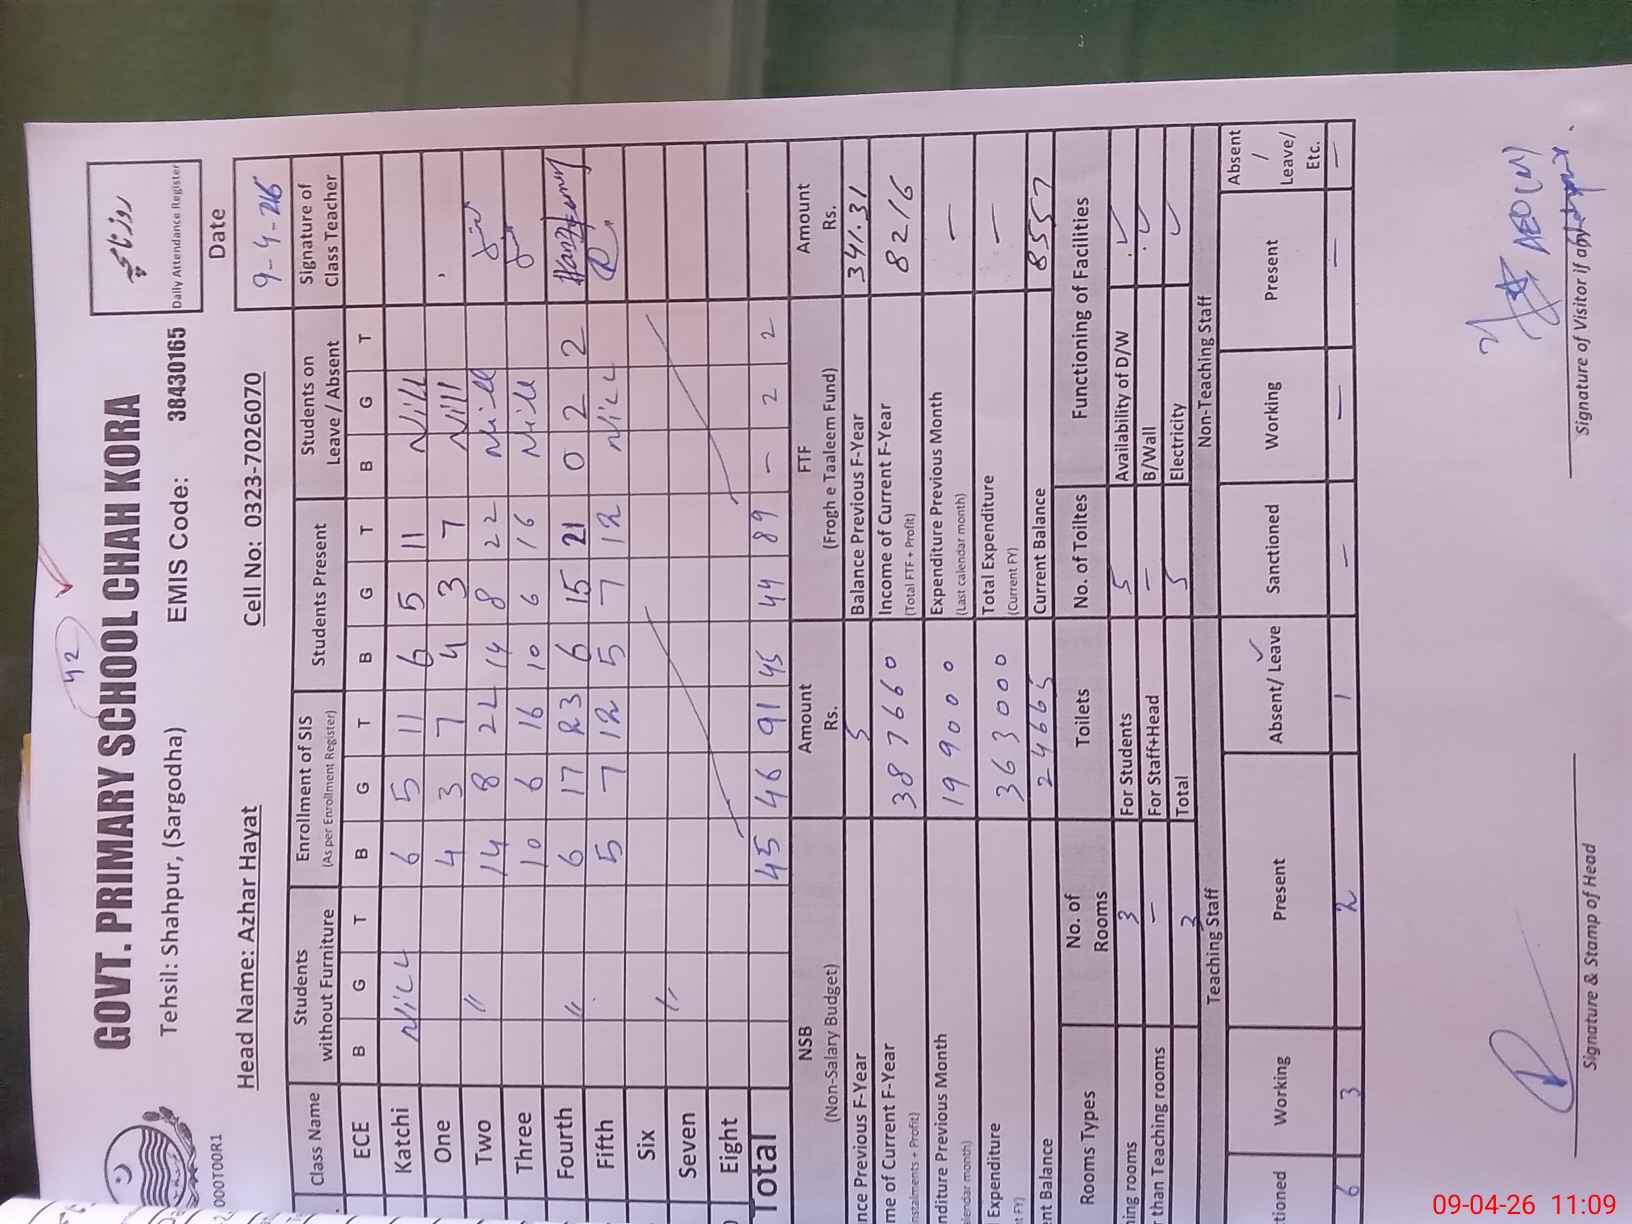 42
GOVT. PRIMARY SCHOOL CHAH KORA
روزنامچہ
Daily Attendance Register
Tehsil: Shahpur, (Sargodha) EMIS Code: 38430165
Date
000T00R1
Head Name: Azhar Hayat Cell No: 0323-7026070 9-4-26
Class Name Students without Furniture Enrollment of SIS (As per Enrollment Register) Students Present Students on Leave / Absent Signature of Class Teacher
ECE B G T B G T B G T B G T
Katchi NILL 6 5 11 6 5 11 Nill
One 4 3 7 4 3 7 Nill
Two " 14 8 22 14 8 22 Nill
Three 10 6 16 10 6 16 Nill
Fourth " 6 17 23 6 15 21 0 2 2
Fifth 5 7 12 5 7 12 NILL
Six
Seven "
Eight
Total 45 46 91 45 44 89 – 2 2
NSB (Non-Salary Budget) Amount Rs. FTF (Frogh e Taaleem Fund) Amount Rs.
nce Previous F-Year 5 Balance Previous F-Year 341.31
me of Current F-Year 387660 Income of Current F-Year 8216
nstalments + Profit) (Total FTF + Profit)
nditure Previous Month 199000 Expenditure Previous Month —
alendar month) (Last calendar month)
Expenditure 363000 Total Expenditure —
nt FY) (Current FY)
nt Balance 24665 Current Balance 8557
Rooms Types No. of Rooms Toilets No. of Toiltes Functioning of Facilities
hing rooms 3 For Students 5 Availability of D/W ✓
r than Teaching rooms — For Staff+Head — B/Wall ✓
3 Total 5 Electricity ✓
Teaching Staff Non-Teaching Staff
tioned Working Present Absent/ Leave ✓ Sanctioned Working Present Absent / Leave/ Etc.
6 3 2 1 — — — —
AEO (M)
Signature & Stamp of Head Signature of Visitor if any
09-04-26 11:09